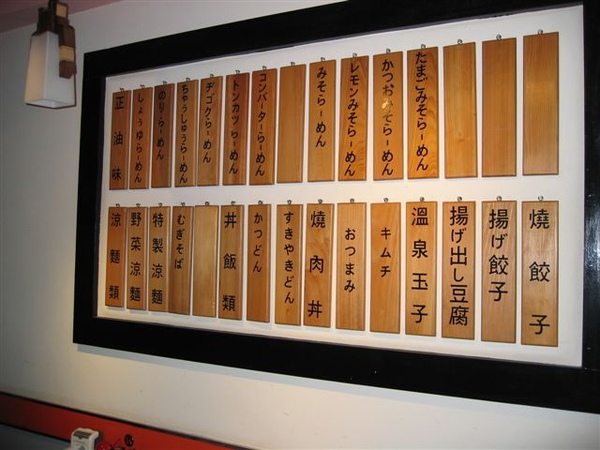 正油味
しょうゆらーめん
のりらーめん
ちゃうしゅうらーめん
ヂゴクらーめん
トンカツらーめん
コンバーターらーめん
みそらーめん
レモンみそらーめん
かつおみそらーめん
たまごみそらーめん
涼麵類
野菜涼麵
特製涼麵
むぎそば
丼飯類
かつどん
すきやきどん
燒肉丼
おつまみ
キムチ
溫泉玉子
揚げ出し豆腐
揚げ餃子
燒餃子